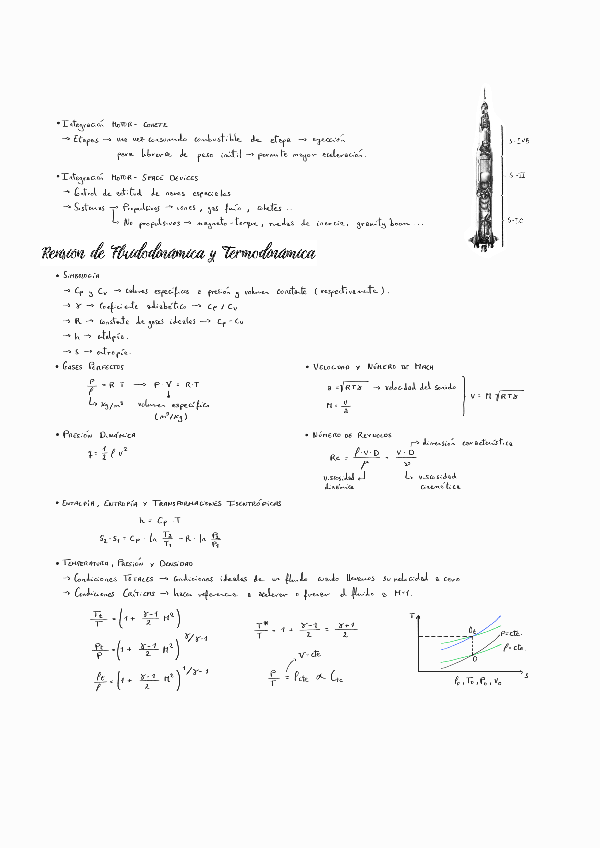 • Integración Motor - Cohete
→ Etapas → una vez consumido combustible de etapa → eyección
para librarse de peso inútil → permite mayor aceleración.
S-IVB
• Integración Motor - Space Devices
S-II
→ Control de actitud de naves espaciales
→ Sistemas → Propulsivos → iones, gas frío, cohetes ..
↳ No propulsivos → magneto-torque, ruedas de inercia, gravity boom ...
S-IC
Revisión de Fluidodinámica y Termodinámica
• Simbología
→ Cp y Cv → calores específicos a presión y volumen constante (respectivamente).
→ γ → Coeficiente adiabático → Cp / Cv
→ R → constante de gases ideales → Cp - Cv
→ h → entalpía.
→ s → entropía.
• Gases Perfectos
P/ρ = R·T → P·V = R·T
↳ kg/m³ volumen específico
(m³/kg)
• Velocidad y Número de Mach
a = √RTγ → velocidad del sonido
M = v/a
V = M √RTγ
• Presión Dinámica
q = 1/2 ρ v²
• Número de Reynolds
→ dimensión característica
Re = ρ·V·D/μ = V·D/ν
viscosidad ↳ viscosidad
dinámica cinemática
• Entalpía, Entropía y Transformaciones Isentrópicas
h = Cp · T
S₂ - S₁ = Cp · ln T₂/T₁ - R · ln P₂/P₁
• Temperatura, Presión y Densidad
→ Condiciones Totales → Condiciones ideales de un fluido cuando llevamos su velocidad a cero
→ Condiciones Críticas → hacen referencia a acelerar o frenar el fluido a M=1.
Tt/T = (1 + γ-1/2 M²)
Pt/P = (1 + γ-1/2 M²)^γ/γ-1
ρt/ρ = (1 + γ-1/2 M²)^1/γ-1
T*/T = 1 + γ-1/2 = γ+1/2
V=cte
P/T = ρcte ∝
T
0t
P=cte.
ρ=cte
0
s
ρ₀, T₀, P₀, V₀